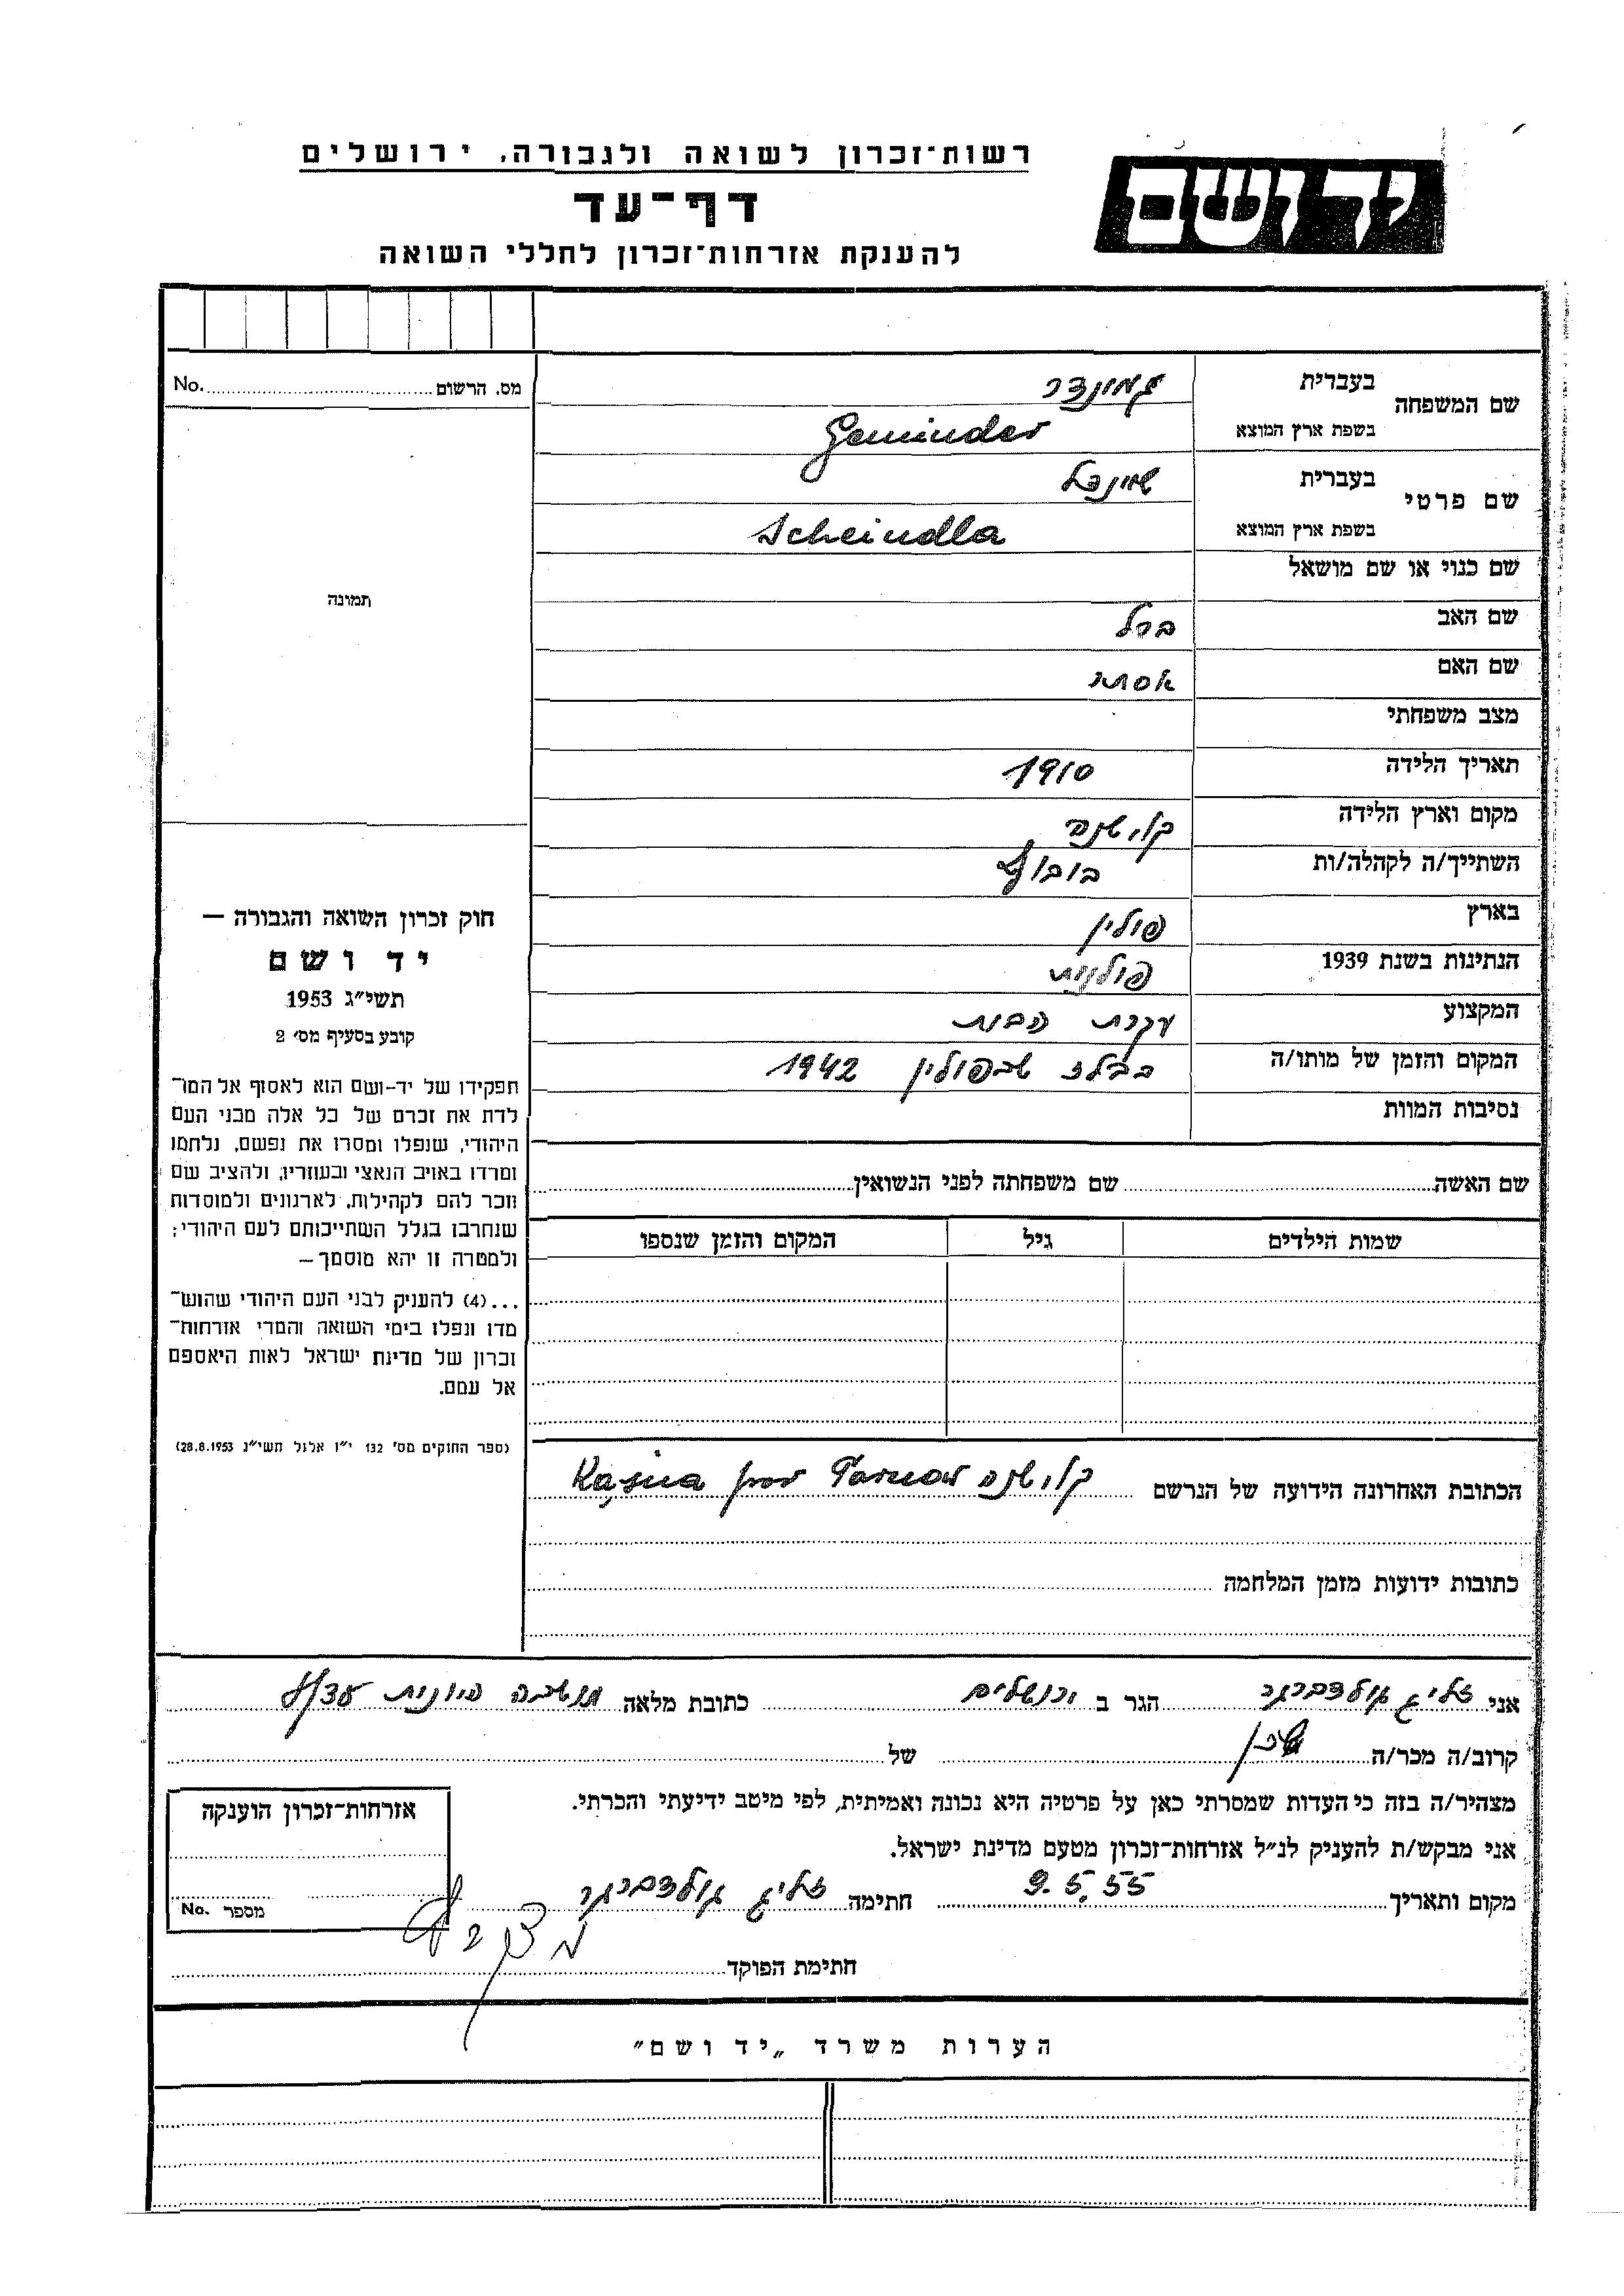 רשות־זכרון לשואה ולגבורה, ירושלים
דף־עד
להענקת אזרחות־זכרון לחללי השואה
יד ושם
No. מס. הרשום
תמונה
חוק זכרון השואה והגבורה —
יד ושם
תשי״ג 1953
קובע בסעיף מס׳ 2
תפקידו של יד-ושם הוא לאסוף אל המו־
לדת את זכרם של כל אלה מבני העם
היהודי, שנפלו ומסרו את נפשם, נלחמו
ומרדו באויב הנאצי ובעוזריו, ולהציב שם
וזכר להם לקהילות, לארגונים ולמוסדות
שנחרבו בגלל השתייכותם לעם היהודי;
ולמטרה זו יהא מוסמך—
...(4) להעניק לבני העם היהודי שהוש־
מדו ונפלו בימי השואה והמרי אזרחות־
זכרון של מדינת ישראל לאות היאספם
אל עמם.
(ספר החוקים מס׳ 132 י״ז אלול תשי״ג 28.8.1953)
שם המשפחה
בעברית גמונדר
בשפת ארץ המוצא Geminder
שם פרטי
בעברית שיינדל
בשפת ארץ המוצא Scheindla
שם כנוי או שם מושאל
שם האב ברל
שם האם אסתר
מצב משפחתי
תאריך הלידה 1910
מקום וארץ הלידה קלושנה
השתייך/ה לקהלה/ות
בארץ פולין
הנתינות בשנת 1939 פולנית
המקצוע עקרת הבית
המקום והזמן של מותו/ה בבלז שבפולין 1942
נסיבות המוות
שם האשה שם משפחתה לפני הנשואין
שמות הילדים גיל המקום והזמן שנספו
הכתובת האחרונה הידועה של הנרשם קלושנה Tarnow
כתובות ידועות מזמן המלחמה
אני זליג גולדברגר הגר ב ירושלים כתובת מלאה
קרוב/ה מכר/ה שכן של
מצהיר/ה בזה כי העדות שמסרתי כאן על פרטיה היא נכונה ואמיתית, לפי מיטב ידיעתי והכרתי.
אני מבקש/ת להעניק לנ״ל אזרחות־זכרון מטעם מדינת ישראל.
מקום ותאריך 9.5.55 חתימה זליג גולדברגר
חתימת הפוקד
אזרחות־זכרון הוענקה
מספר No.
הערות משרד „יד ושם״